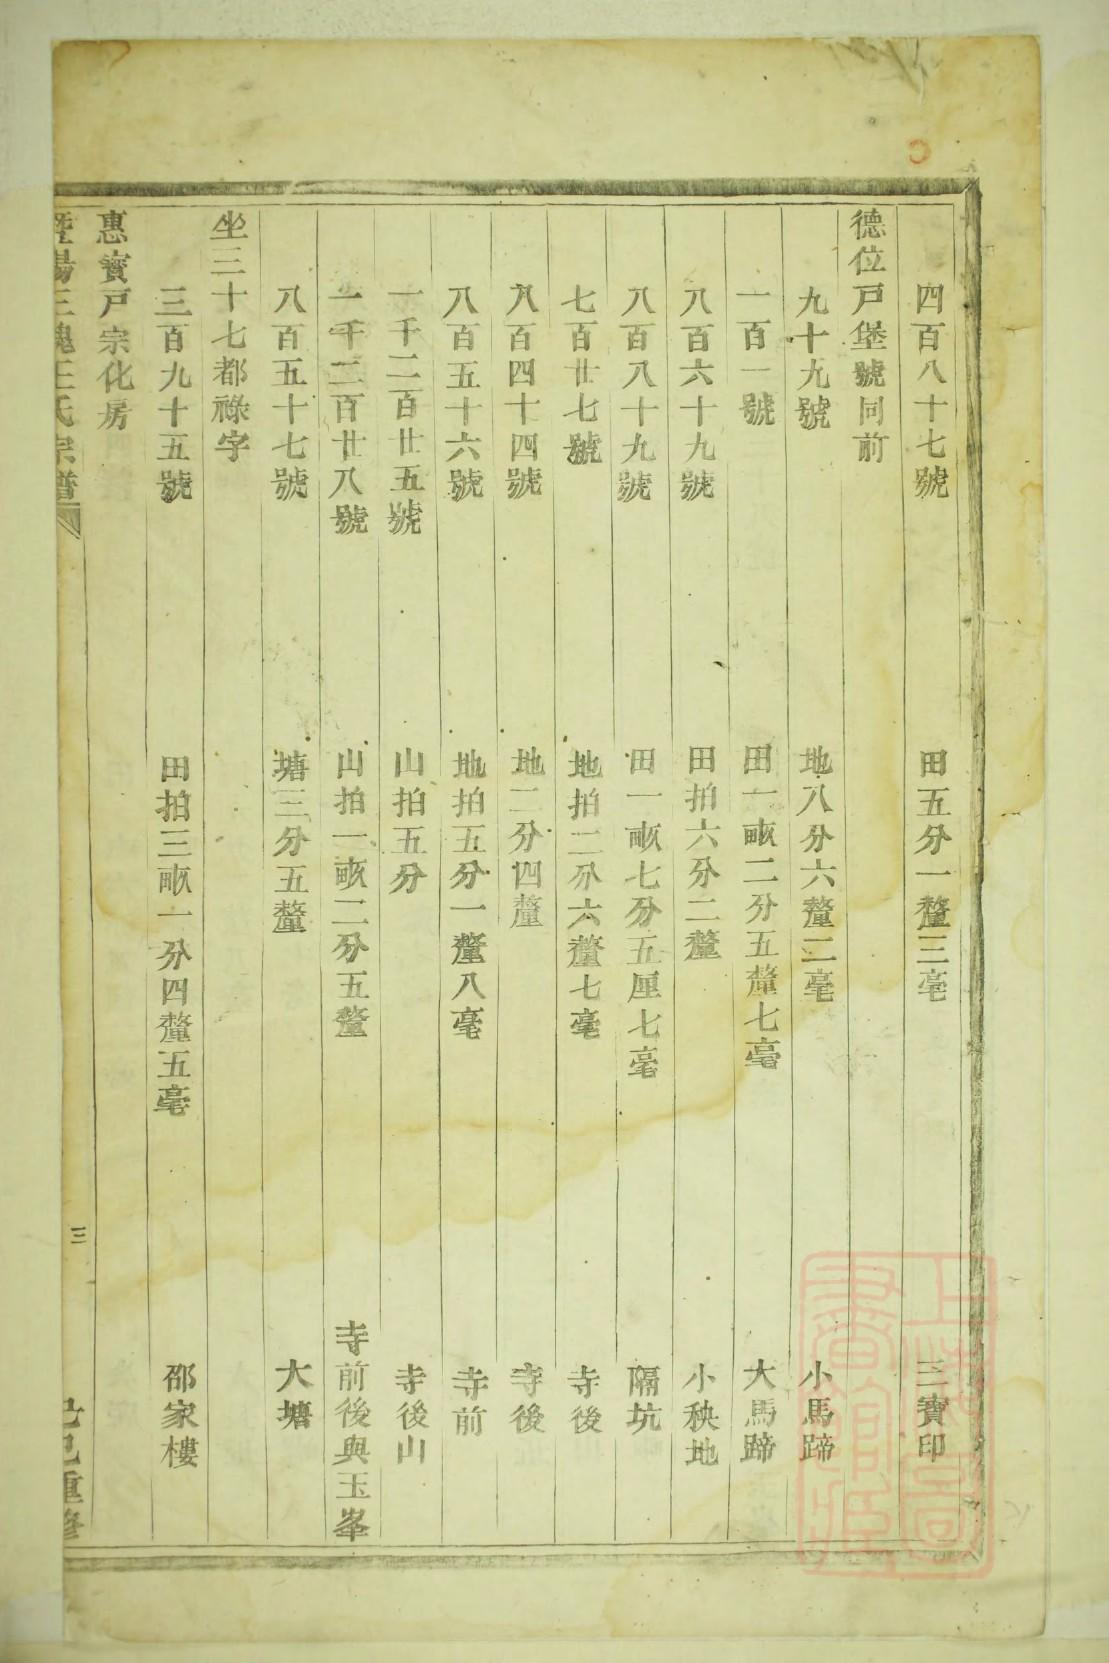 四百八十七號 田五分一釐三毫 三寶印
德位戸堡號同前
九十九號 地八分六釐二毫 小馬蹄
一百一號 田一畝二分五釐七毫 大馬蹄
八百六十九號 田拍六分二釐 小秧地
八百八十九號 田一畝七分五厘七毫 隔坑
七百廿七號 地拍二分六釐七毫 寺後
八百四十四號 地二分四釐 寺後
八百五十六號 地拍五分一釐八毫 寺前
一千二百廿五號 山拍五分 寺後山
一千二百廿八號 山拍一畝二分五釐 寺前後與玉峯
八百五十七號 塘三分五釐 大塘
坐三十七都祿字
三百九十五號 田拍三畝一分四釐五毫 邵家樓
惠賓戸宗化房
暨陽三槐王氏宗譜 三 己巳重修
上海圖書館藏